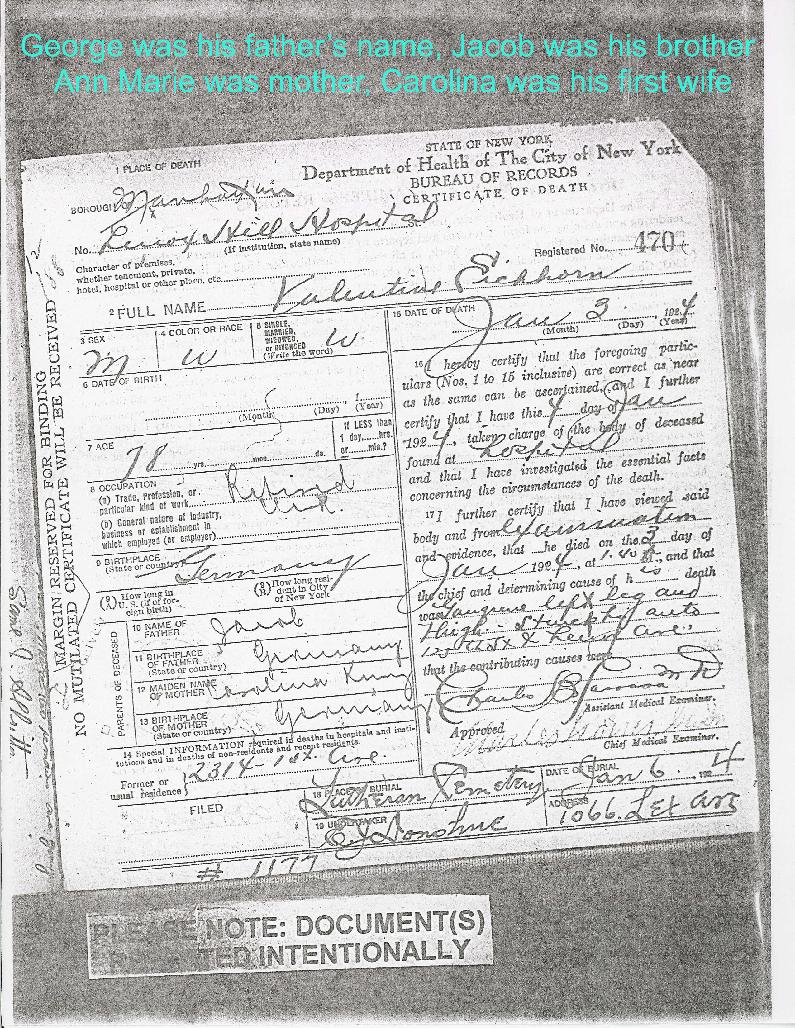 George was his father's name, Jacob was his brother
Ann Marie was mother, Carolina was his first wife
STATE OF NEW YORK
Department of Health of The City of New York
BUREAU OF RECORDS
CERTIFICATE OF DEATH
1 PLACE OF DEATH
BOROUGH Manhattan
No. Lenox Hill Hospital St.
(If institution, state name)
Character of premises,
whether tenement, private,
hotel, hospital or other place, etc.
Registered No. 470
2 FULL NAME Valentine Eichhorn
3 SEX M
4 COLOR OR RACE W
5 SINGLE, MARRIED, WIDOWED, OR DIVORCED (Write the word) W.
6 DATE OF BIRTH
(Month) (Day) 1 (Year)
7 AGE 78 yrs. mos. ds.
If LESS than 1 day, hrs. or min.?
8 OCCUPATION Retired
(a) Trade, Profession, or
particular kind of work
(b) General nature of industry,
business or establishment in
which employed (or employer)
9 BIRTHPLACE
(State or country) Germany
(A) How long in U. S. (if of foreign birth)
(B) How long resident in City of New York
PARENTS OF DECEASED
10 NAME OF FATHER Jacob
11 BIRTHPLACE OF FATHER (State or country) Germany
12 MAIDEN NAME OF MOTHER Carolina
13 BIRTHPLACE OF MOTHER (State or country) Germany
14 Special INFORMATION required in deaths in hospitals and institutions and in deaths of non-residents and recent residents.
Former or usual residence 2314 1st. Ave.
15 DATE OF DEATH Jan 3 1924
(Month) (Day) (Year)
16 I hereby certify that the foregoing partic-
ulars (Nos. 1 to 15 inclusive) are correct as near
as the same can be ascertained, and I further
certify that I have this 4 day of Jan
1924, taken charge of the body of deceased
found at hospital
and that I have investigated the essential facts
concerning the circumstances of the death.
17 I further certify that I have viewed said
body and from Examination
and evidence, that he died on the 3 day of
Jan 1924, at 1.40 M., and that
the chief and determining cause of his death
was Gangrene left leg and
thigh. Struck by auto
125th St & Ave.
that the contributing causes were
Charles MD
Assistant Medical Examiner.
Approved
Chief Medical Examiner.
FILED
18 PLACE OF BURIAL Lutheran Cemetery
DATE OF BURIAL Jan 6. 1924
19 UNDERTAKER Donohue
ADDRESS 1066. Lex Ave
# 1177
MARGIN RESERVED FOR BINDING
NO MUTILATED CERTIFICATE WILL BE RECEIVED
PLEASE NOTE: DOCUMENT(S)
INTENTIONALLY